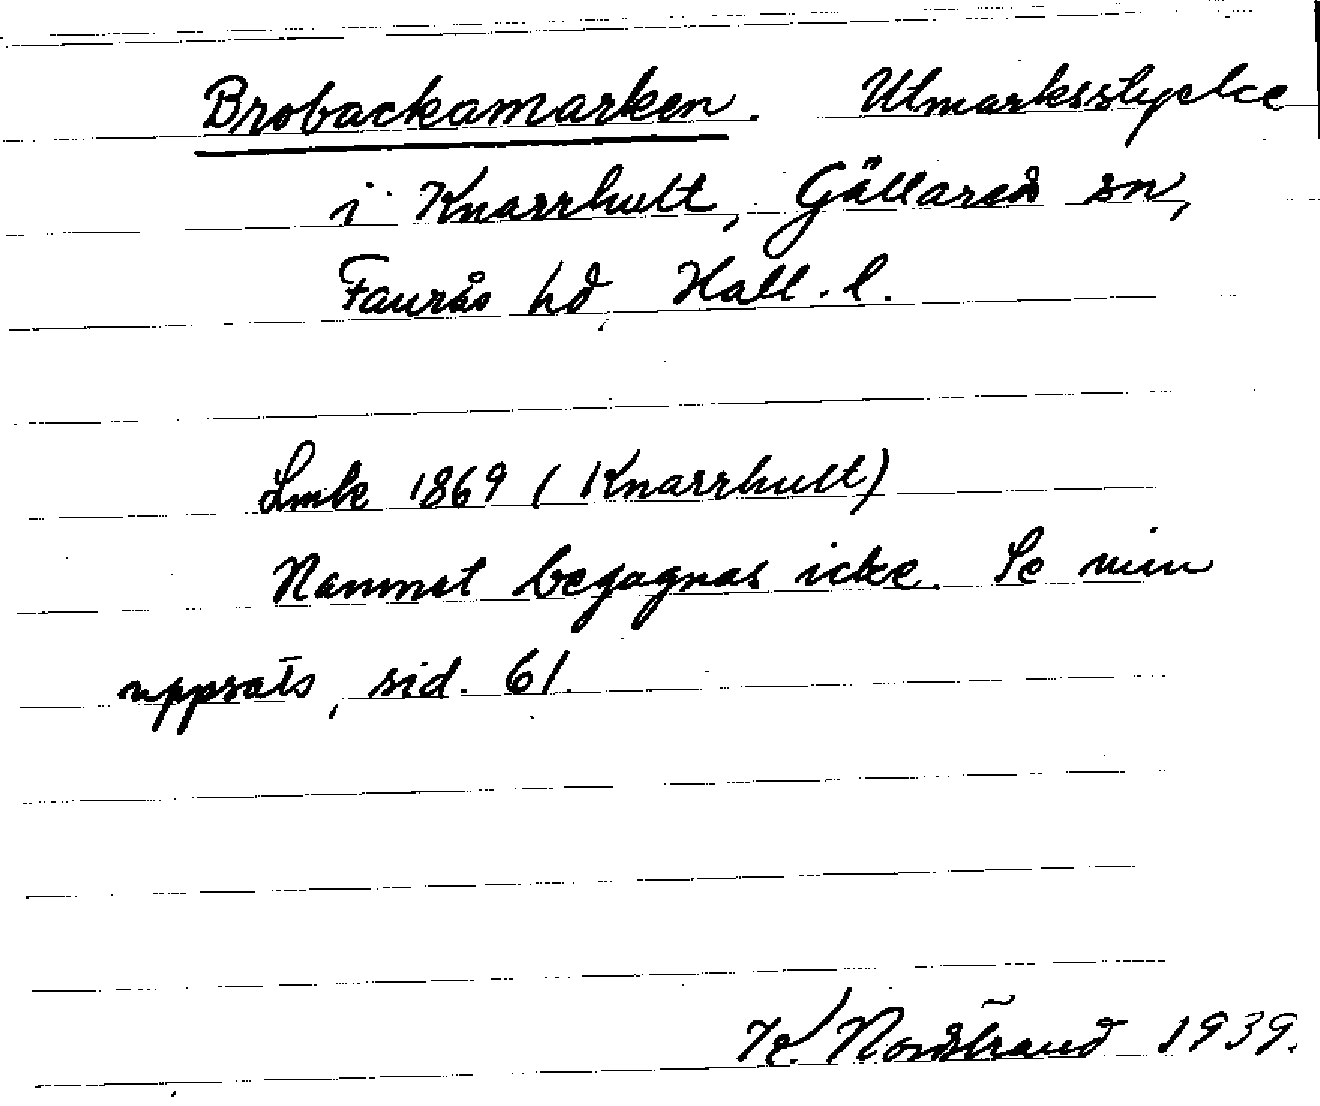 Brobackamarken. Utmarksstycke
i Knarrhult, Gällared sn,
Faurås hd, Hall. l.
Lmk 1869 (Knarrhult)
Namnet begagnas icke. Se min
uppsats, sid. 61.
K. Nordstrand 1939.